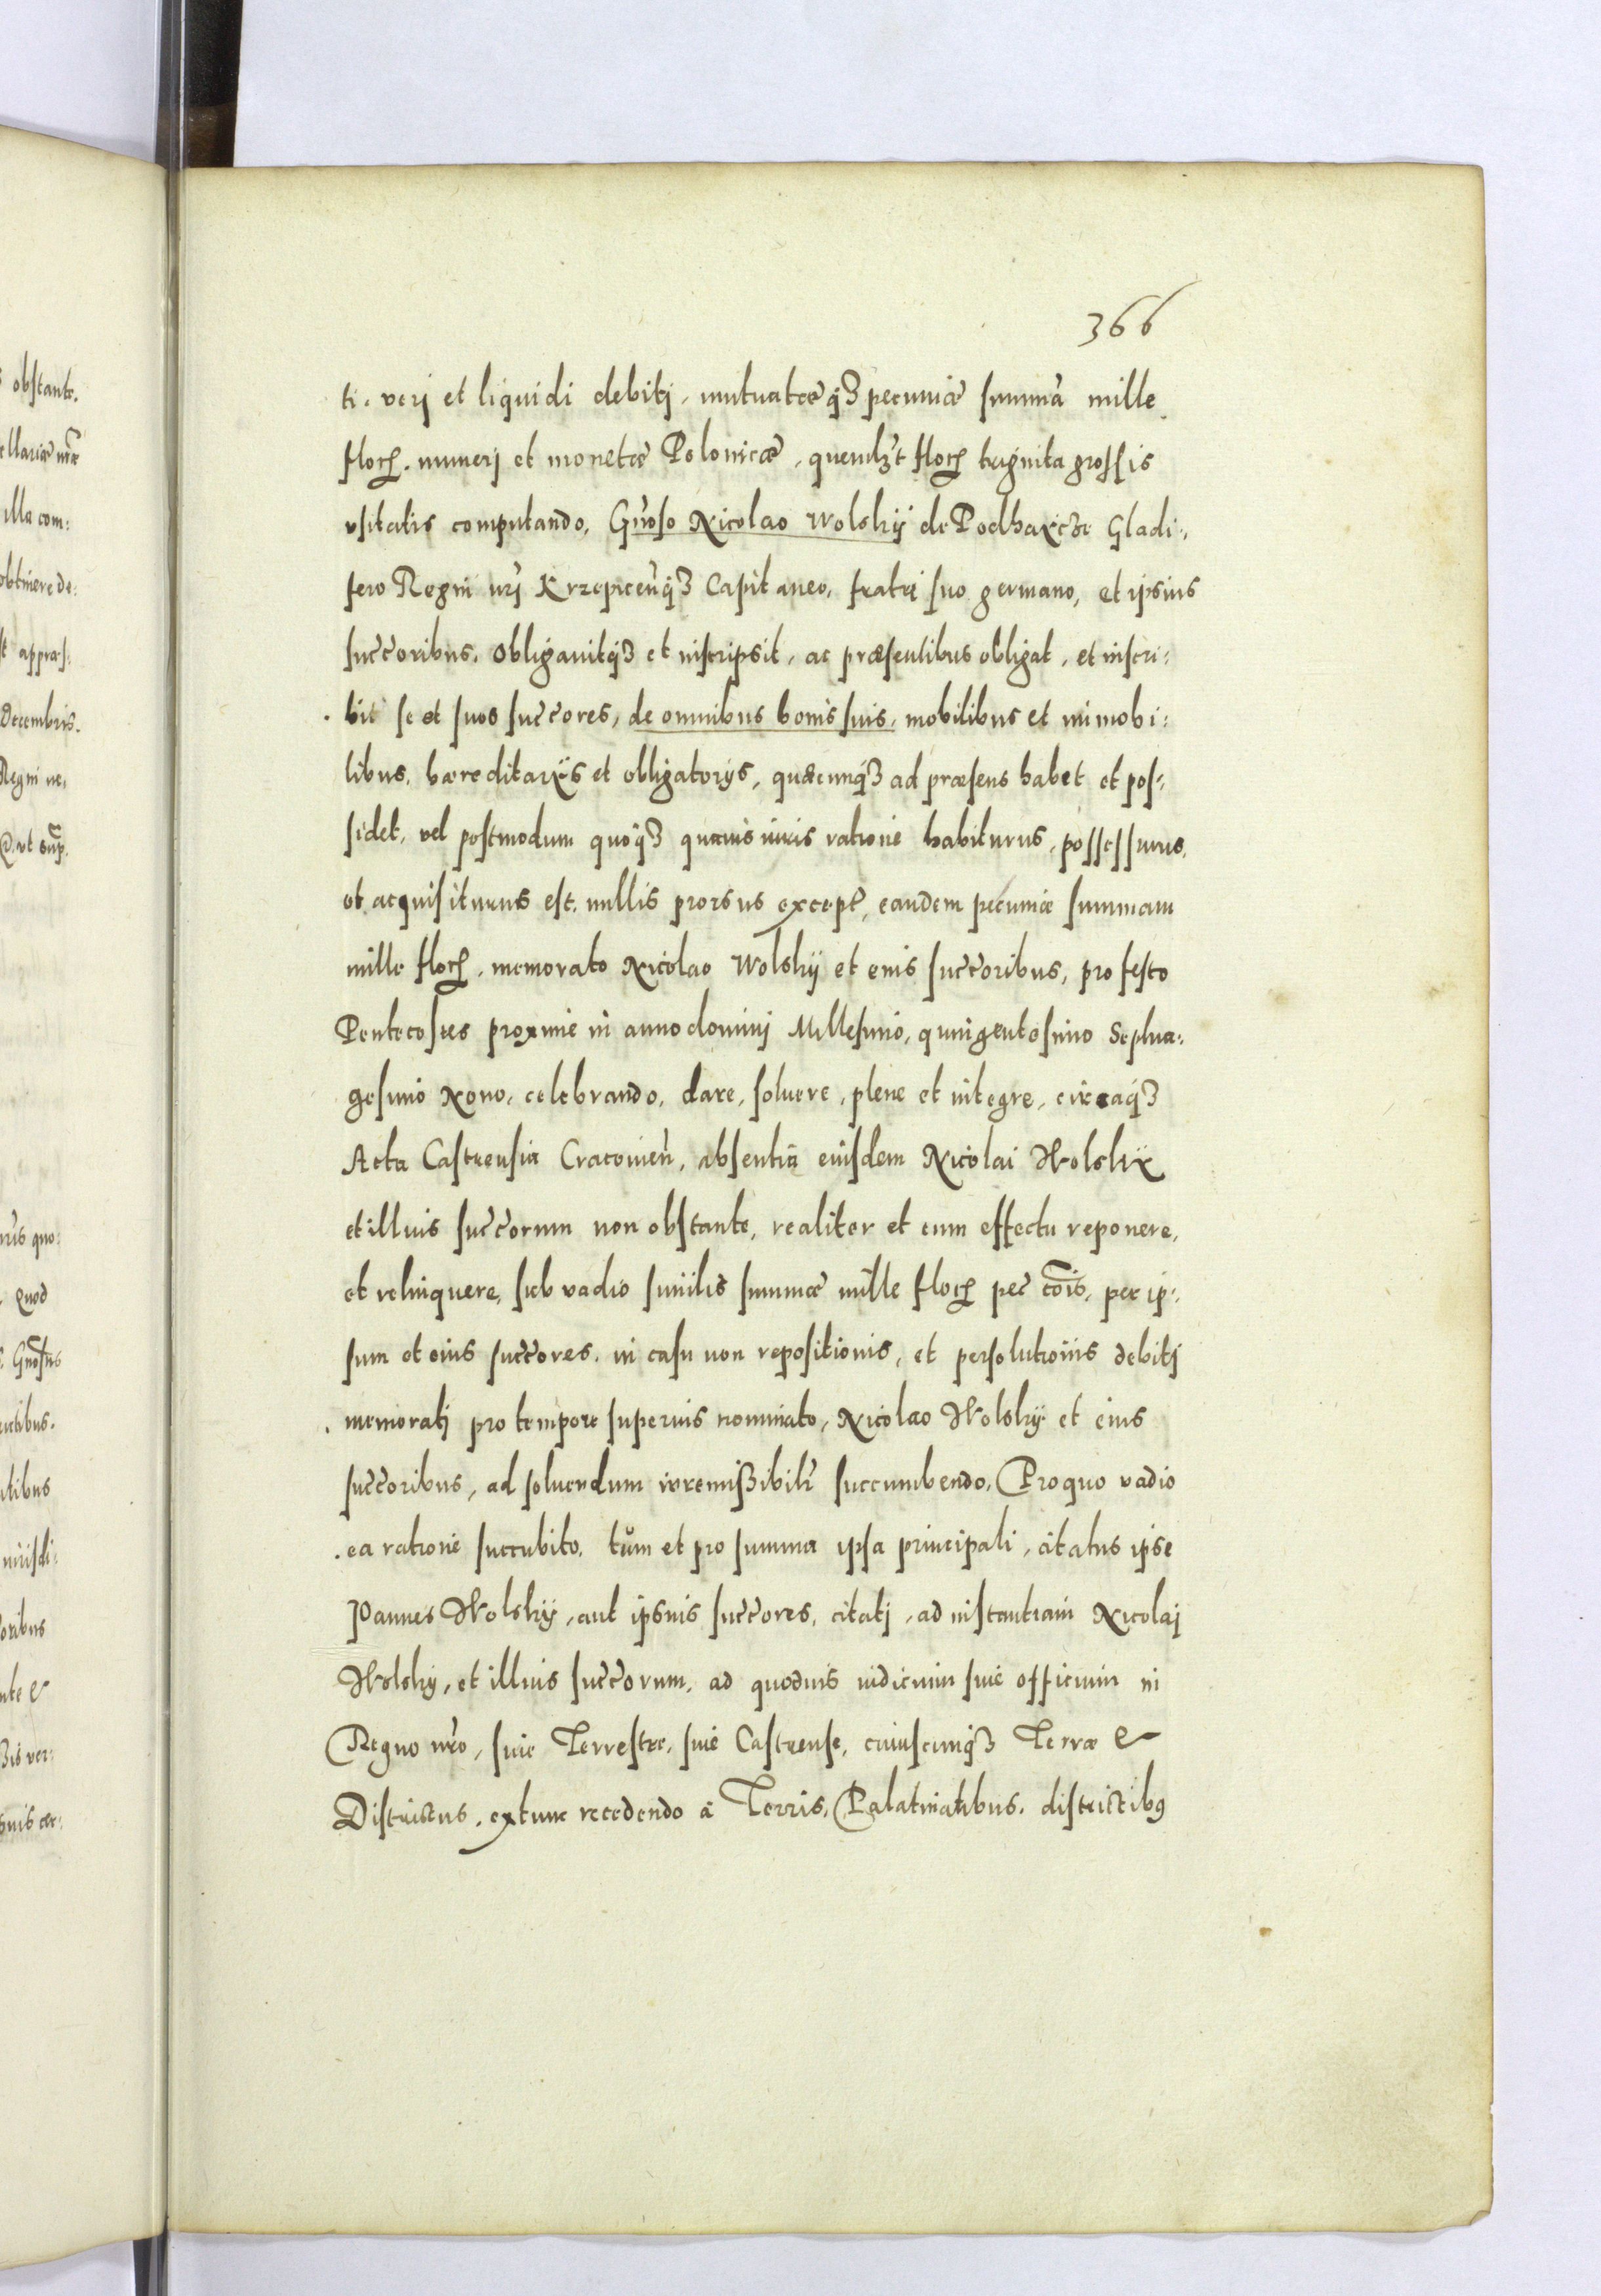 366
ti. verj et liquidi debitj, mutuatæq3 pecuniæ summã mille
floꝝ. numerj et monetæ Polonicæ, quemlz̃t floꝝ triginta grossis
vsitatis computando, Gñoso Nicolao Wolskÿ de Podhaycze Gladi:
fero Regni nrj̃ Krzepiceñq3 Capitaneo, fratri suo germano, et ipsius
succ̃oribus. Obligauitq3 et inscripsit, ac præsentibus obligat, et inscri:
bit se et suos succ̃ores, de omnibus bonis suis, mobilibus et immobi:
libus, hæreditarÿs et obligatorÿs, quæcunq3 ad præsens habet et pos:
sidet, vel postmodum quoq3 quauis iuris ratione habiturus, possessurus,
et acquisiturus est, nullis prorsus except̃, eandem pecuniæ summam
mille floꝝ, memorato Nicolao Wolskÿ et eius succ̃oribus, pro festo
Pentecostes proxime in anno dominj Millesimo, quingentesimo Septua:
gesimo Nono, celebrando, dare, soluere, plene et integre, circaq3
Acta Castrensia Cracouieñ, absentia eiusdem Nicolai Wolskÿ
et illius succ̃orum non obstante, realiter et cum effectu reponere,
et relinquere, sub vadio similis summæ mille floꝝ pec̃ com̃is, per ip:
sum et eius succ̃ores, in casu non repositionis, et persolutionis debitj
memoratj pro tempore superius nominato, Nicolao Wolskÿ et eius
succ̃oribus, ad soluendum irremißibilr̃ succumbendo, Pro quo vadio
ea ratione succubito, tùm et pro summa ipsa principali, citatus ipse
Joannes Wolskÿ, aut ipsius succ̃ores, citatj, ad instantiam Nicolaj
Wolskÿ, et illius succ̃orum, ad quoduis iudicium siue officium in
Regno nr̃o, siue Terrestre, siue Castrense, cuiuscunq3 Terræ &
Districtus, extunc recedendo à Terris, Palatinatibus, districtibꝯ
obstante.
illa com:
obtinere de:
Decembris.
Regni
vt sup̃.
quo:
Quod
Gnosus